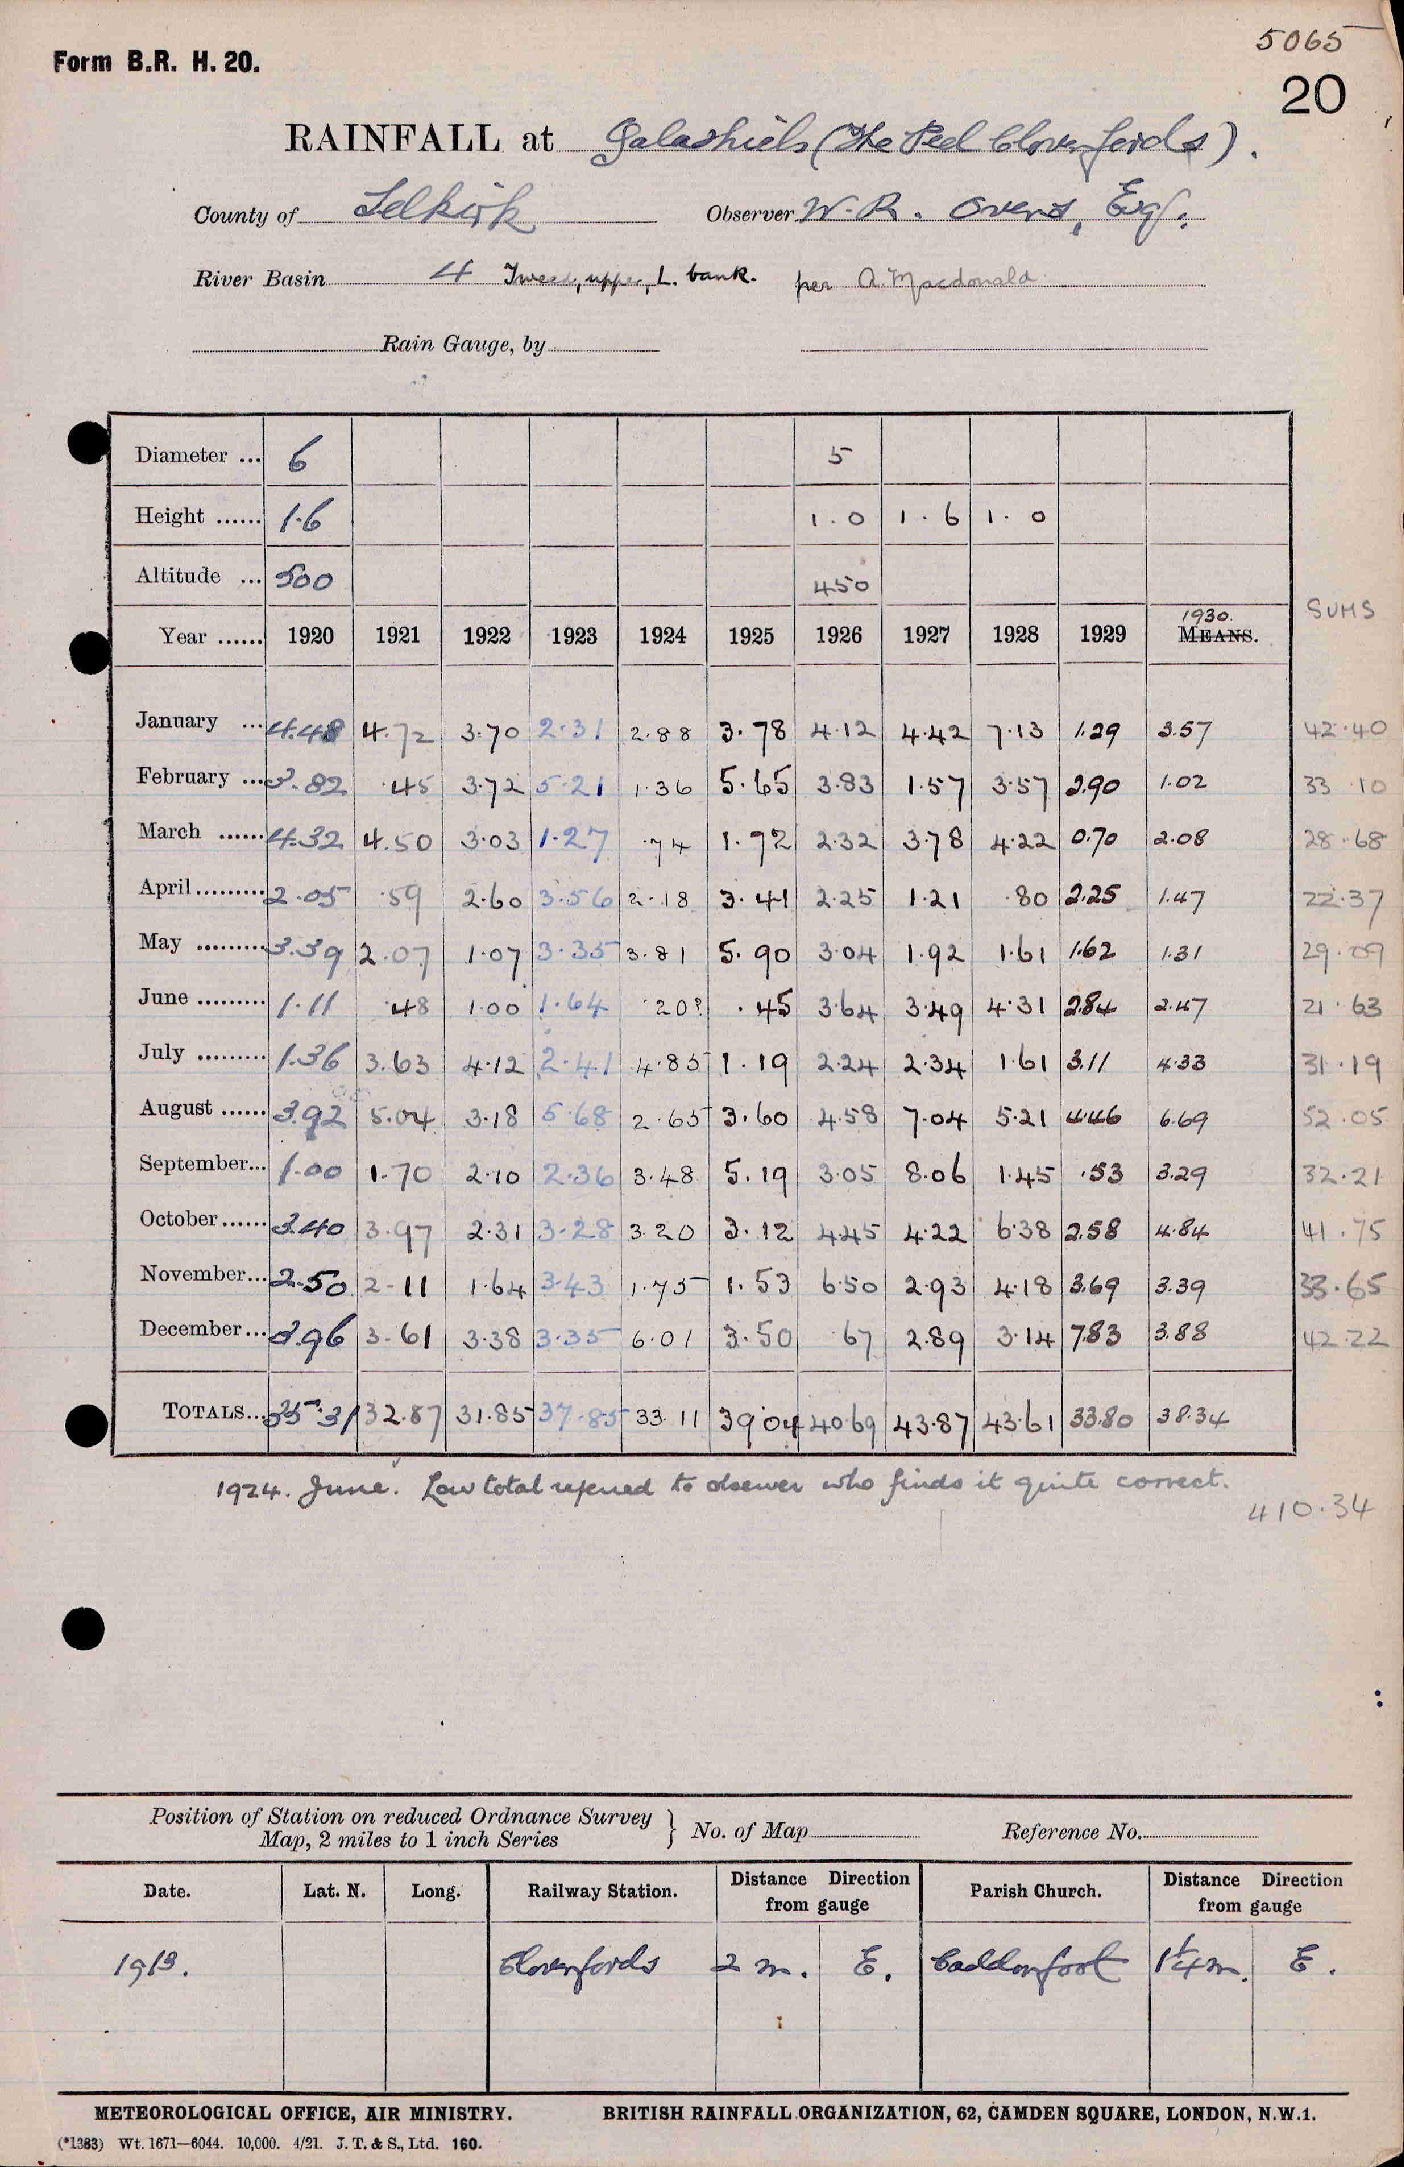 5065
Form B.R. H. 20.
20
RAINFALL at Galashiels (The Peel Clovenfords).
County of Selkirk Observer W. R. Ovens, Esq.
River Basin 4 Tweed, upper, L. bank. per A. Macdonald
Rain Gauge, by
Diameter ... 6 5
Height ...... 1.6 1.0 1.6 1.0
Altitude ... 500 450
1930. SUMS
Year ...... 1920 1921 1922 1923 1924 1925 1926 1927 1928 1929 MEANS.
January ... 4.48 4.72 3.70 2.31 2.88 3.78 4.12 4.42 7.13 1.29 3.57 42.40
February ... 3.82 .45 3.72 5.21 1.36 5.65 3.83 1.57 3.57 2.90 1.02 33.10
March ...... 4.32 4.50 3.03 1.27 .74 1.72 2.32 3.78 4.22 0.70 2.08 28.68
April ......... 2.05 .59 2.60 3.56 2.18 3.41 2.25 1.21 .80 2.25 1.47 22.37
May ......... 3.39 2.07 1.07 3.35 3.81 5.90 3.04 1.92 1.61 1.62 1.31 29.09
June ......... 1.11 .48 1.00 1.64 .20? .45 3.64 3.49 4.31 2.84 2.47 21.63
July ......... 1.36 3.63 4.12 2.41 4.85 1.19 2.24 2.34 1.61 3.11 4.33 31.19
August ...... 3.92 5.04 3.18 5.68 2.65 3.60 4.58 7.04 5.21 4.46 6.69 52.05
September... 1.00 1.70 2.10 2.36 3.48 5.19 3.05 8.06 1.45 .53 3.29 32.21
October ...... 3.40 3.97 2.31 3.28 3.20 3.12 4.45 4.22 6.38 2.58 4.84 41.75
November... 2.50 2.11 1.64 3.43 1.75 1.53 6.50 2.93 4.18 3.69 3.39 33.65
December ... 3.96 3.61 3.38 3.35 6.01 3.50 .67 2.89 3.14 7.83 3.88 42.22
TOTALS... 35.31 32.87 31.85 37.85 33.11 39.04 40.69 43.87 43.61 33.80 38.34
1924. June. Low total referred to observer who finds it quite correct.
410.34
Position of Station on reduced Ordnance Survey
Map, 2 miles to 1 inch Series } No. of Map Reference No.
Date. Lat. N. Long. Railway Station. Distance Direction from gauge Parish Church. Distance Direction from gauge
1913. Clovenfords 2 m. E. Caddonfoot 1 1/4 m. E.
METEOROLOGICAL OFFICE, AIR MINISTRY. BRITISH RAINFALL ORGANIZATION, 62, CAMDEN SQUARE, LONDON, N.W.1.
(*1383) Wt. 1671—6044. 10,000. 4/21. J. T. & S., Ltd. 160.